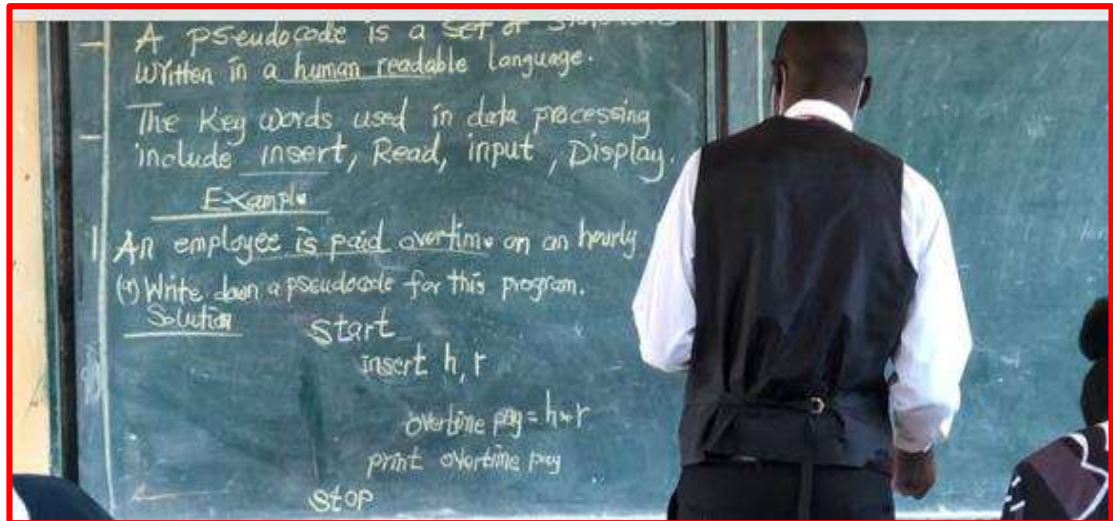 - A pseudocode is a set of
written in a human readable language.
- The Key words used in data processing
include insert, Read, input, Display.
Example
1 An employee is paid overtime on an hourly
(a) Write down a pseudocode for this program.
Solution
Start
insert h, r
overtime pay = h*r
print overtime pay
stop